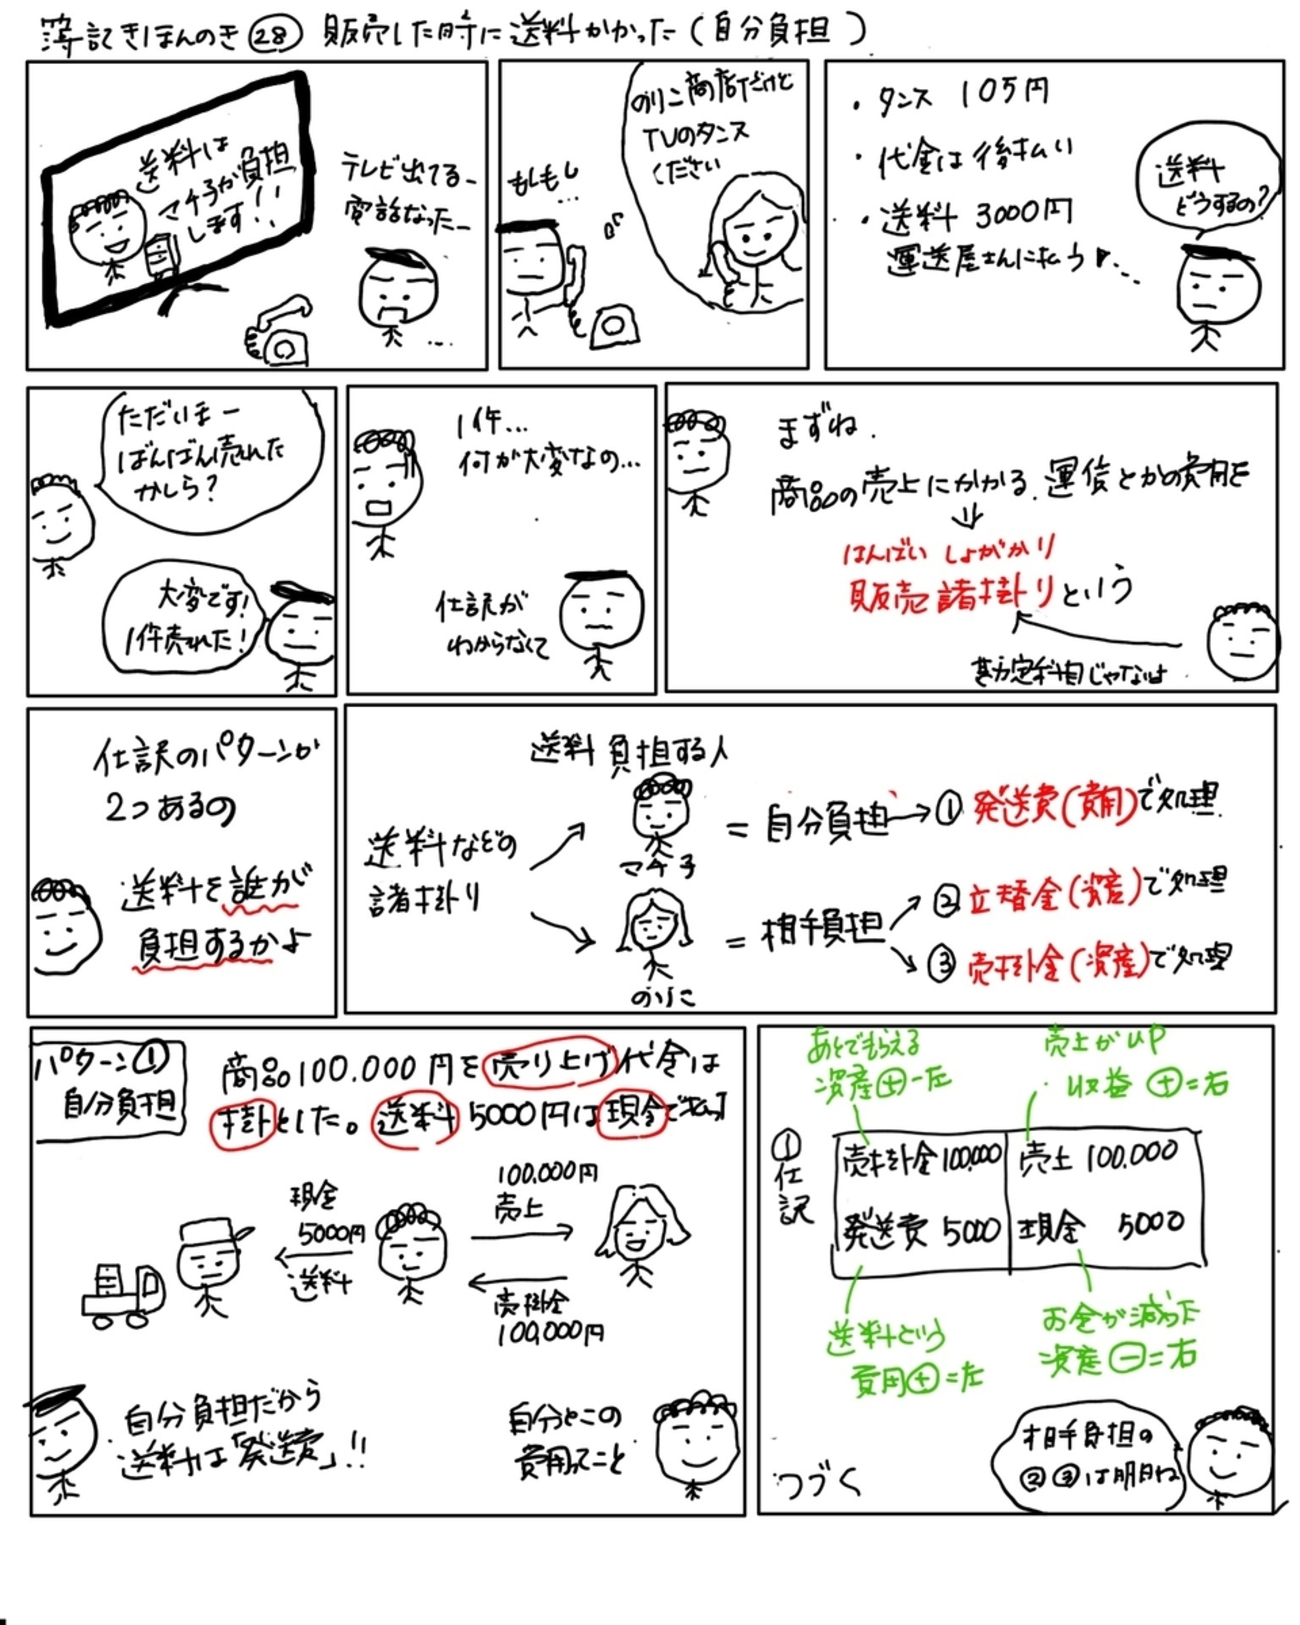 簿記きほんのき㉘ 販売した時に送料かかった(自分負担)
送料は
マチ子が負担
します!!
テレビ出てる〜
電話なった〜
もしもし
...
のりこ商店だけど
TVのタンス
ください
・タンス 10万円
・代金は後払い
・送料 3000円
運送屋さんに払う
送料
どうするの?
ただいまー
ばんばん売れた
かしら?
大変です!
1件売れた!
1件...
何が大変なの...
仕訳が
わからなくて
まずね.
商品の売上にかかる運送とかの費用を
はんばい しょがかり
販売諸掛りという
勘定科目じゃないよ
仕訳のパターンが
2つあるの
送料を誰が
負担するかよ
送料負担する人
送料などの
諸掛り
マチ子
= 自分負担→①発送費(費用)で処理
のりこ
= 相手負担
②立替金(資産)で処理
③売掛金(資産)で処理
パターン①
自分負担
商品100.000円を売り上げ代金は
掛とした。送料5000円は現金で払った
現金
5000円
送料
100.000円
売上
売掛金
100,000円
自分負担だから
送料は「発送費」!!
自分とこの
費用ってこと
あとでもらえる
資産⊕=左
売上がUP
収益⊕=右
①仕訳
売掛金100,000 売上 100.000
発送費 5000 現金 5000
送料という
費用⊕=左
お金が減った
資産⊖=右
相手負担の
②③は明日ね
つづく